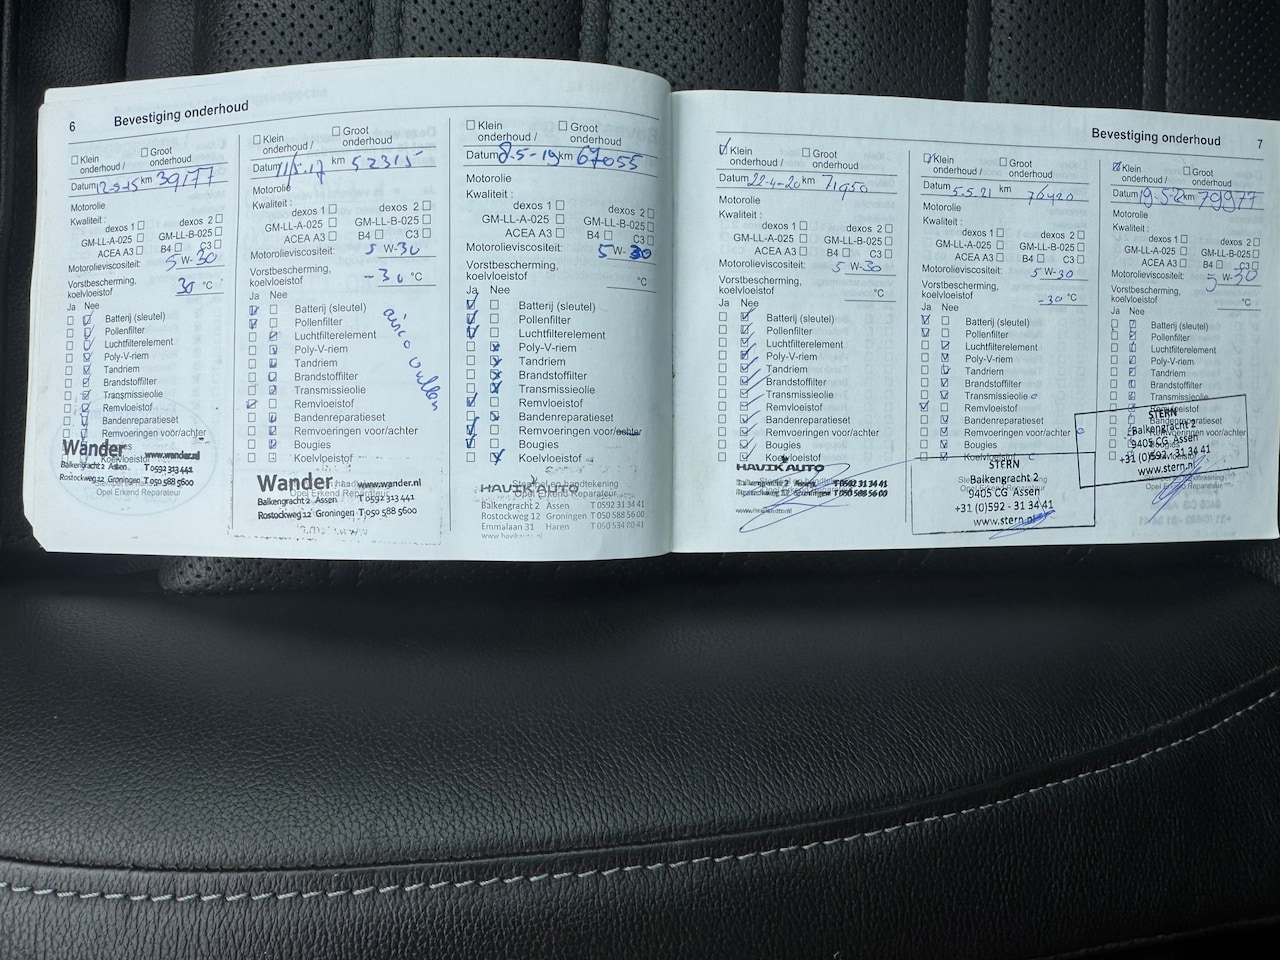 6 Bevestiging onderhoud
Klein onderhoud / Groot onderhoud
Datum 12-5-15 km 39177
Motorolie
Kwaliteit :
dexos 1 dexos 2
GM-LL-A-025 GM-LL-B-025
ACEA A3 B4 C3
Motorolieviscositeit: 5 W-30
Vorstbescherming, koelvloeistof 30 °C
Ja Nee
Batterij (sleutel)
Pollenfilter
Luchtfilterelement
Poly-V-riem
Tandriem
Brandstoffilter
Transmissieolie
Remvloeistof
Bandenreparatieset
Remvoeringen voor/achter
Wander www.wander.nl
Balkengracht 2 Assen T 0592 313 441
Rostockweg 12 Groningen T 050 588 5600
Opel Erkend Reparateur
Klein onderhoud / Groot onderhoud
Datum 11/5-17 km 52315
Motorolie
Kwaliteit :
dexos 1 dexos 2
GM-LL-A-025 GM-LL-B-025
ACEA A3 B4 C3
Motorolieviscositeit: 5 W-30
Vorstbescherming, koelvloeistof -30 °C
Ja Nee
Batterij (sleutel)
Pollenfilter
Luchtfilterelement
Poly-V-riem
Tandriem
Brandstoffilter
Transmissieolie
Remvloeistof
Bandenreparatieset
Remvoeringen voor/achter
Bougies
Koelvloeistof
airco vullen
Wander www.wander.nl
Opel Erkend Reparateur
Balkengracht 2 Assen T 0592 313 441
Rostockweg 12 Groningen T 050 588 5600
Klein onderhoud / Groot onderhoud
Datum 8-5-19 km 67055
Motorolie
Kwaliteit :
dexos 1 dexos 2
GM-LL-A-025 GM-LL-B-025
ACEA A3 B4 C3
Motorolieviscositeit: 5 W-30
Vorstbescherming, koelvloeistof °C
Ja Nee
Batterij (sleutel)
Pollenfilter
Luchtfilterelement
Poly-V-riem
Tandriem
Brandstoffilter
Transmissieolie
Remvloeistof
Bandenreparatieset
Remvoeringen voor/achter
Bougies
Koelvloeistof
HAVIK AUTO
Opel Erkend Reparateur
Balkengracht 2 Assen T 0592 31 34 41
Rostockweg 12 Groningen T 050 588 56 00
Emmalaan 31 Haren T 050 534 80 41
Bevestiging onderhoud 7
Klein onderhoud / Groot onderhoud
Datum 22-4-20 km 71950
Motorolie
Kwaliteit :
dexos 1 dexos 2
GM-LL-A-025 GM-LL-B-025
ACEA A3 B4 C3
Motorolieviscositeit: 5 W-30
Vorstbescherming, koelvloeistof °C
Ja Nee
Batterij (sleutel)
Pollenfilter
Luchtfilterelement
Poly-V-riem
Tandriem
Brandstoffilter
Transmissieolie
Remvloeistof
Bandenreparatieset
Remvoeringen voor/achter
Bougies
Koelvloeistof
HAVIK AUTO
Balkengracht 2 Assen T 0592 31 34 41
Rostockweg 12 Groningen T 050 588 56 00
Klein onderhoud / Groot onderhoud
Datum 5.5.21 km 76420
Motorolie
Kwaliteit :
dexos 1 dexos 2
GM-LL-A-025 GM-LL-B-025
ACEA A3 B4 C3
Motorolieviscositeit: 5 W-30
Vorstbescherming, koelvloeistof -30 °C
Ja Nee
Batterij (sleutel)
Pollenfilter
Luchtfilterelement
Poly-V-riem
Tandriem
Brandstoffilter
Transmissieolie
Remvloeistof
Bandenreparatieset
Remvoeringen voor/achter
Bougies
Koelvloeistof
STERN
Balkengracht 2
9405 CG Assen
+31 (0)592 - 31 34 41
www.stern.nl
Klein onderhoud / Groot onderhoud
Datum 19-5-22 km 79977
Motorolie
Kwaliteit :
dexos 1 dexos 2
GM-LL-A-025 GM-LL-B-025
ACEA A3 B4 C3
Motorolieviscositeit: 5 W-30
Vorstbescherming, koelvloeistof °C
Ja Nee
Batterij (sleutel)
Pollenfilter
Luchtfilterelement
Poly-V-riem
Tandriem
Brandstoffilter
Transmissieolie
Remvloeistof
STERN
Balkengracht 2
9405 CG Assen
+31 (0)592 - 31 34 41
www.stern.nl
Opel Erkend Reparateur